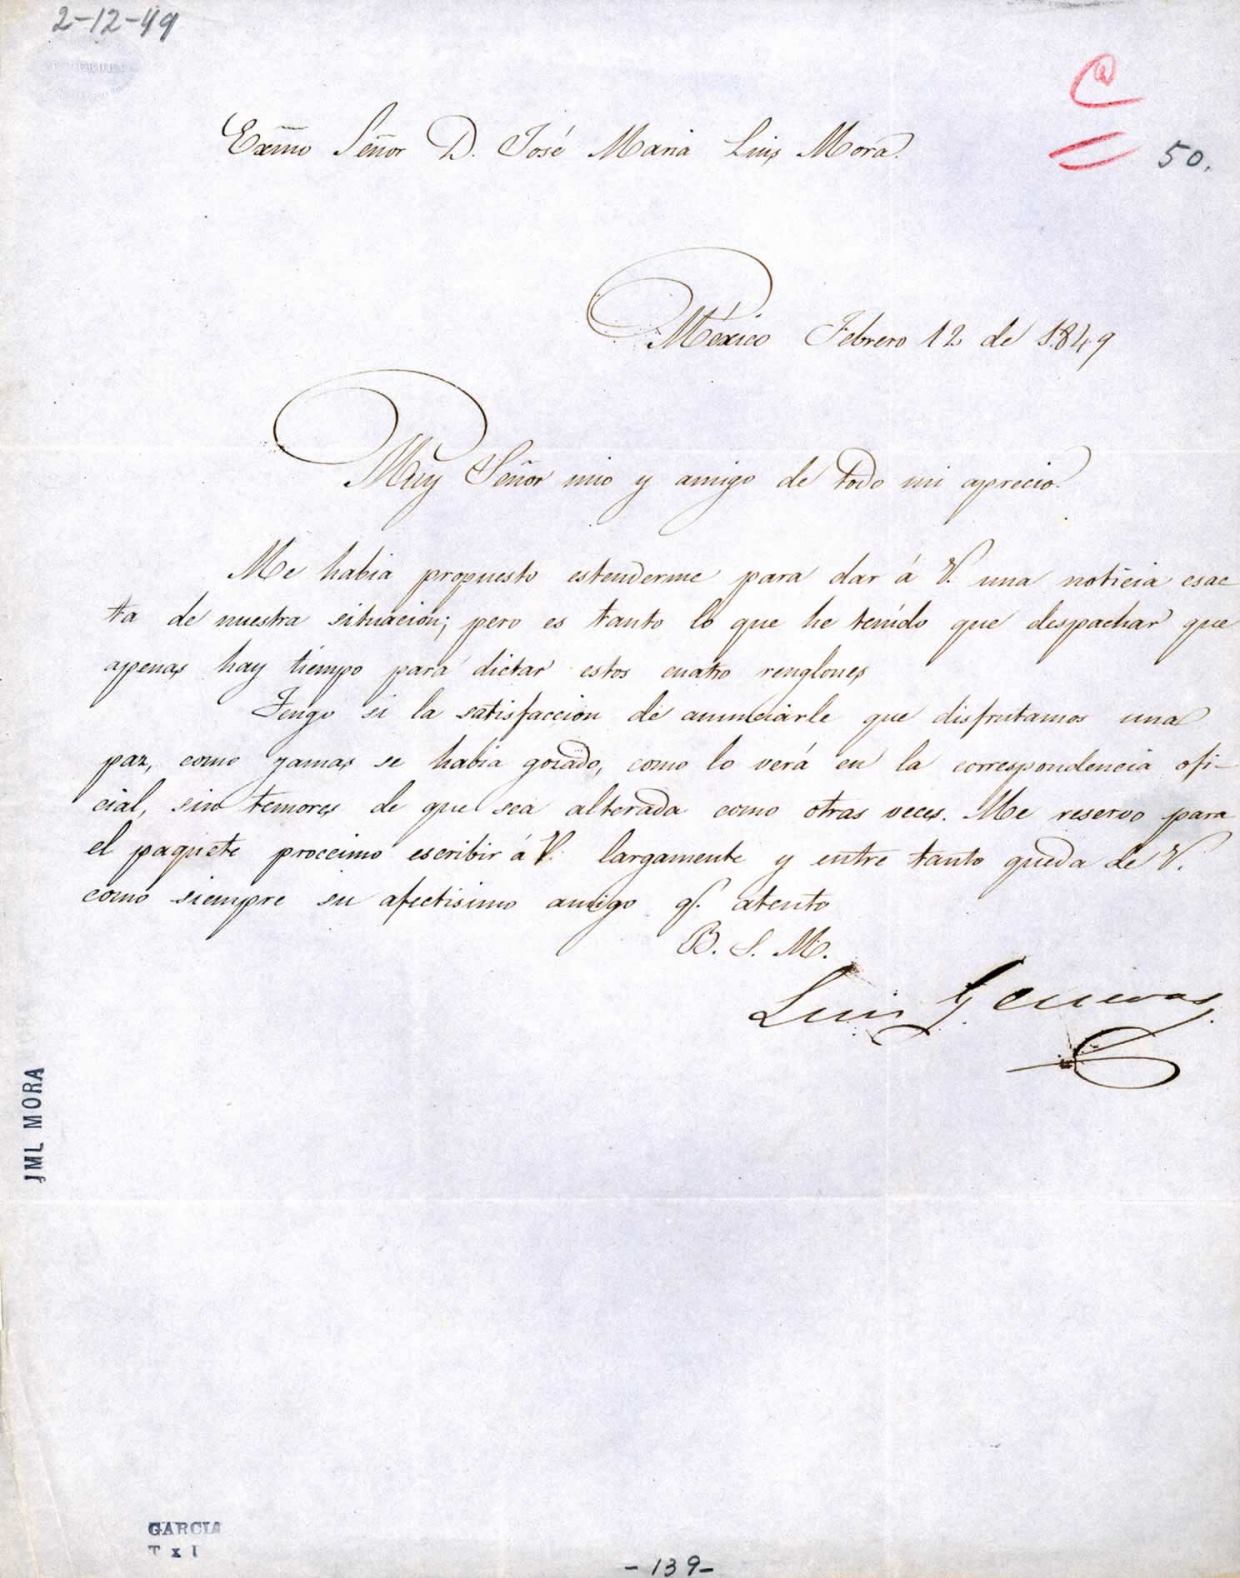 2-12-49
C
50.
Exmo Señor D. José Maria Luis Mora.
México Febrero 12 de 1849
Muy Señor mio y amigo de todo mi aprecio.
Me habia propuesto estenderme para dar á V. una noticia esac
ta de nuestra situacion; pero es tanto lo que he tenido que despachar que
apenas hay tiempo para dictar estos cuatro renglones
Tengo si la satisfaccion de anunciarle que disfrutamos una
paz, como jamas se habia gozado, como lo verá en la correspondencia ofi-
cial, sin temores de que sea alterada como otras veces. Me reservo para
el paquete proccimo escribir á V. largamente y entre tanto queda de V.
como siempre su afectisimo amigo q. atento
B. S. M.
Luis G. Cuevas.
JML MORA
GARCIA
T x I
-139-